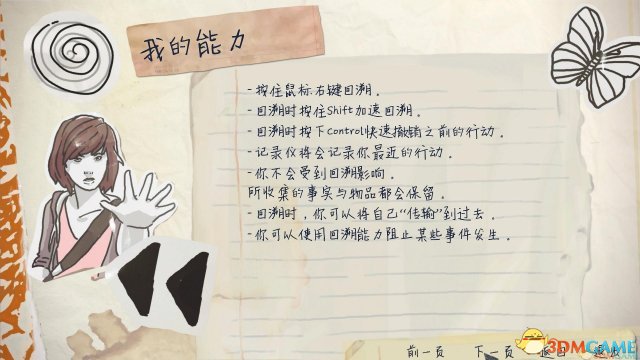 我的能力
- 按住鼠标右键回溯。
- 回溯时按住Shift加速回溯。
- 回溯时按下Control快速撤销之前的行动。
- 记录仪将会记录你最近的行动。
- 你不会受到回溯影响。
所收集的事实与物品都会保留。
- 回溯时，你可以将自己“传输”到过去。
- 你可以使用回溯能力阻止某些事件发生。
前一页 下一页 返回
3DMGAME